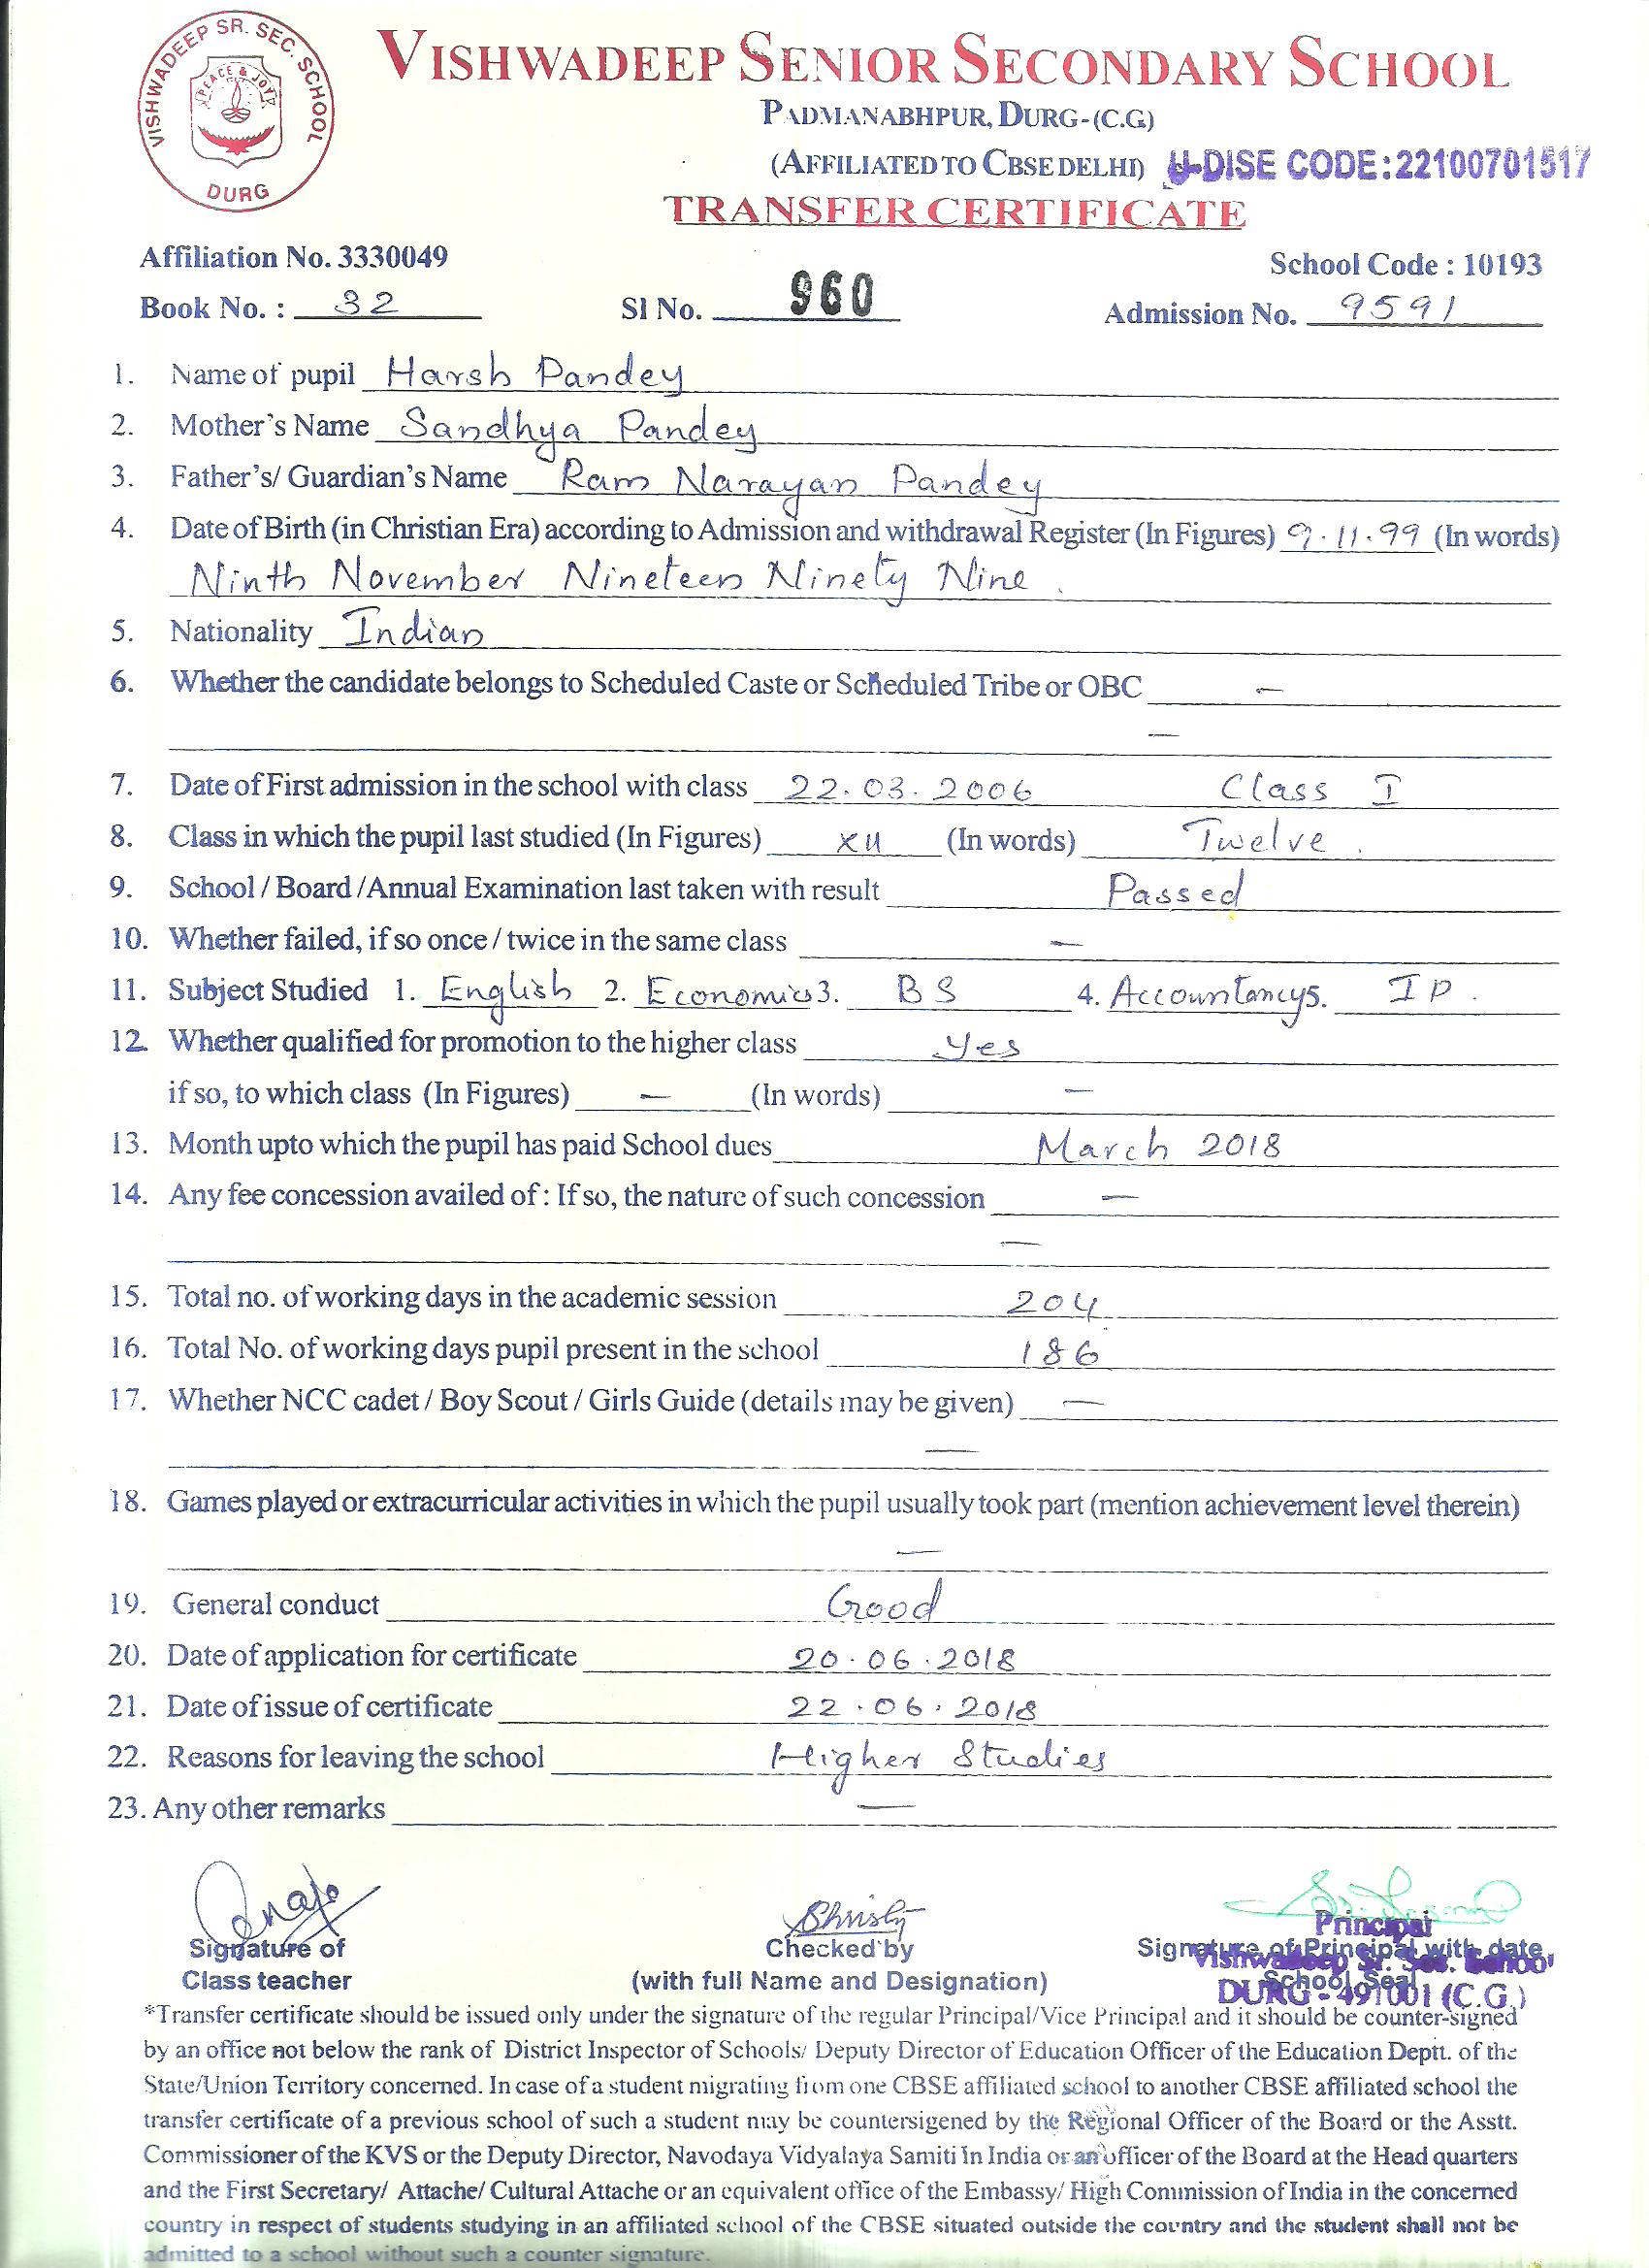 VISHWADEEP SR. SEC. SCHOOL
PEACE & JOY
DURG
VISHWADEEP SENIOR SECONDARY SCHOOL
PADMANABHPUR, DURG-(C.G)
(AFFILIATED TO CBSE DELHI) U-DISE CODE:22100701517
TRANSFER CERTIFICATE
Affiliation No. 3330049 School Code : 10193
Book No. : 32 Sl No. 960 Admission No. 9591
1. Name of pupil Harsh Pandey
2. Mother's Name Sandhya Pandey
3. Father's/ Guardian's Name Ram Narayan Pandey
4. Date of Birth (in Christian Era) according to Admission and withdrawal Register (In Figures) 9.11.99 (In words)
Ninth November Nineteen Ninety Nine.
5. Nationality Indian
6. Whether the candidate belongs to Scheduled Caste or Scheduled Tribe or OBC —
—
7. Date of First admission in the school with class 22.03.2006 Class I
8. Class in which the pupil last studied (In Figures) XII (In words) Twelve.
9. School / Board /Annual Examination last taken with result Passed
10. Whether failed, if so once / twice in the same class —
11. Subject Studied 1. English 2. Economics 3. BS 4. Accountancy 5. IP.
12. Whether qualified for promotion to the higher class Yes
if so, to which class (In Figures) — (In words) —
13. Month upto which the pupil has paid School dues March 2018
14. Any fee concession availed of : If so, the nature of such concession —
—
15. Total no. of working days in the academic session 204
16. Total No. of working days pupil present in the school 186
17. Whether NCC cadet / Boy Scout / Girls Guide (details may be given) —
—
18. Games played or extracurricular activities in which the pupil usually took part (mention achievement level therein)
—
19. General conduct Good
20. Date of application for certificate 20.06.2018
21. Date of issue of certificate 22.06.2018
22. Reasons for leaving the school Higher Studies
23. Any other remarks —
Principal
Signature of Checked by Signature of Principal with date,
Vishwadeep Sr. Sec. School
Class teacher (with full Name and Designation) School Seal
DURG - 491001 (C.G.)
*Transfer certificate should be issued only under the signature of the regular Principal/Vice Principal and it should be counter-signed
by an office not below the rank of District Inspector of Schools/ Deputy Director of Education Officer of the Education Deptt. of the
State/Union Territory concerned. In case of a student migrating from one CBSE affiliated school to another CBSE affiliated school the
transfer certificate of a previous school of such a student may be countersigened by the Regional Officer of the Board or the Asstt.
Commissioner of the KVS or the Deputy Director, Navodaya Vidyalaya Samiti In India or an officer of the Board at the Head quarters
and the First Secretary/ Attache/ Cultural Attache or an equivalent office of the Embassy/ High Commission of India in the concerned
country in respect of students studying in an affiliated school of the CBSE situated outside the country and the student shall not be
admitted to a school without such a counter signature.